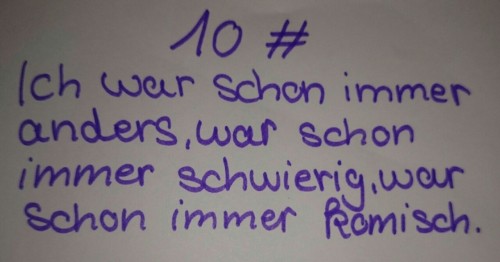 10 #
Ich war schon immer
anders, war schon
immer schwierig, war
schon immer komisch.